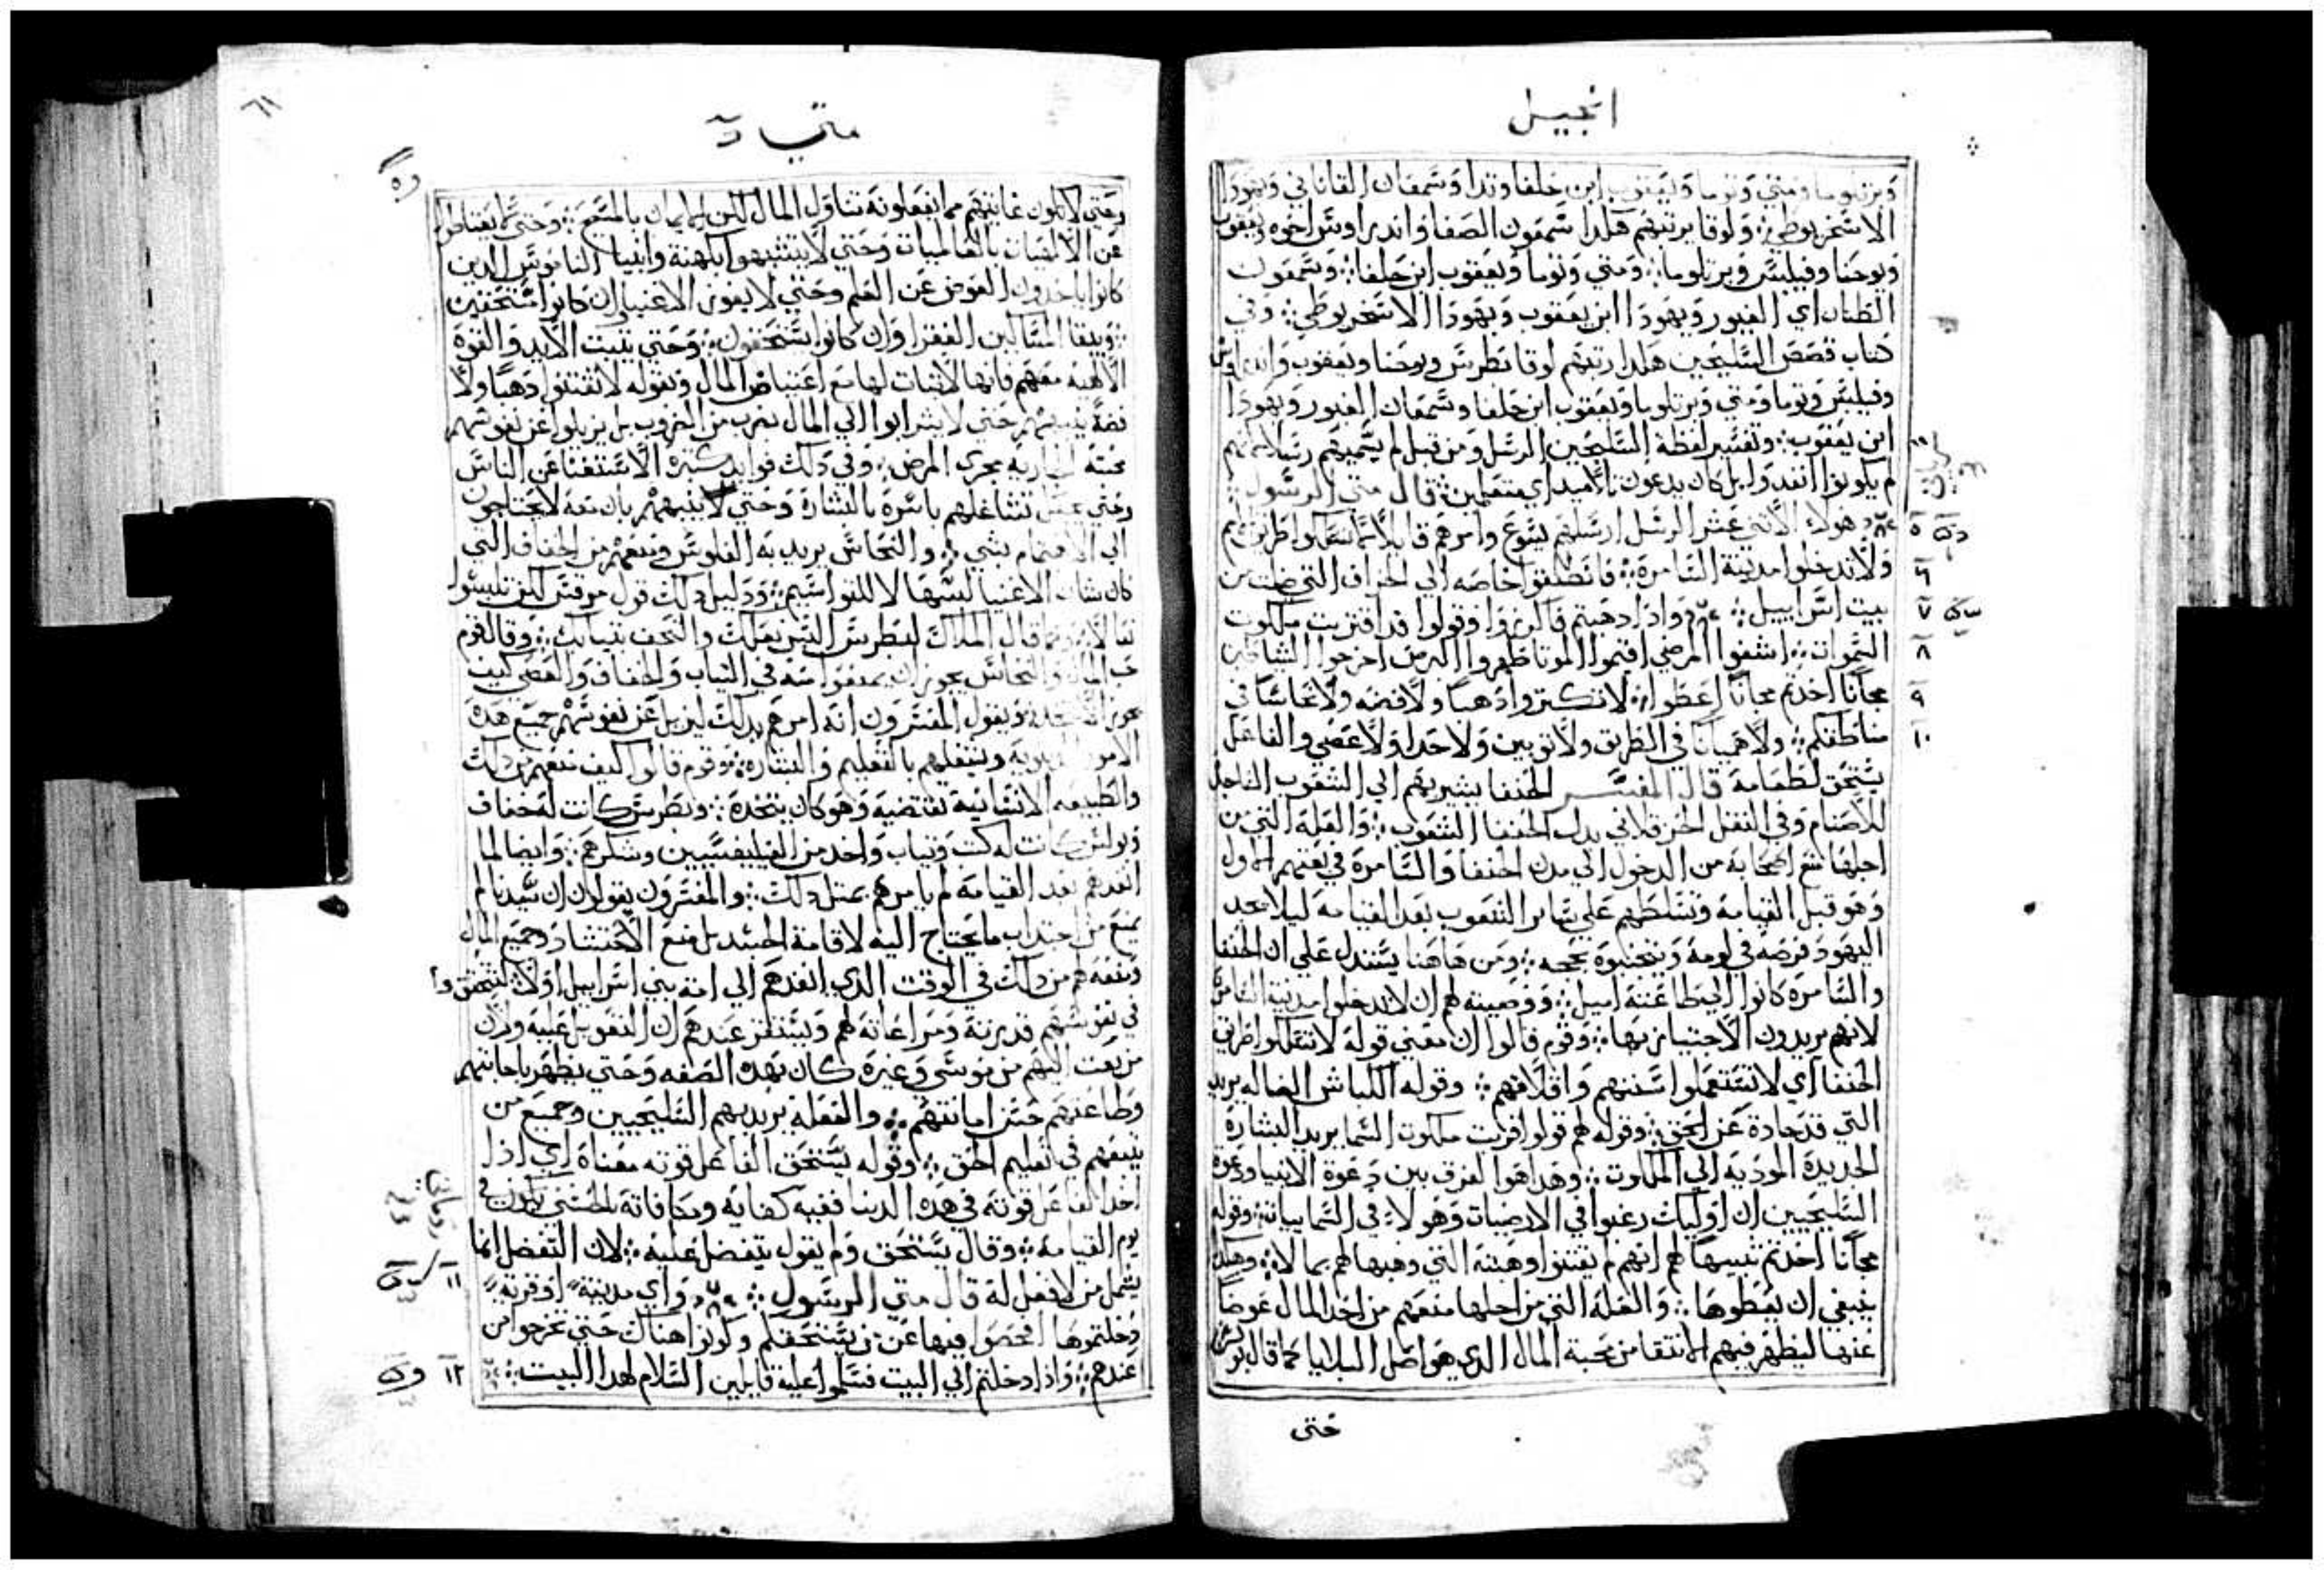 انجيل
وبرتلوما ومتي وتوما ويعقوب ابن حلفا وتدا وسمعان القاناني ويهودا
الاسخريوطي ولوقا يرتبهم هكدا سمعون الصفا واندراوس اخوه ويعقوب
ويوحنا وفيلبس وبرتلوما ومتي وتوما ويعقوب ابن حلفا وسمعون
الطنان اي الغيور ويهودا ابن يعقوب ويهودا الاسخريوطي وفي
كتاب قصص السليحين هكدا رتبهم لوقا بطرس ويوحنا ويعقوب واندراوس
وفيلبس وتوما ومتي وبرتلوما ويعقوب ابن حلفا وسمعان الغيور ويهودا
ابن يعقوب وتفسير لفظة السليحين الرسل ومن قبل لم يسميهم رسلا لانهم
لم يكونوا انفدوا بل كان يدعون تلاميد اي متعلمين قال متي الرسول
٥ هولاء الاثني عشر الرسل ارسلهم يسوع وامرهم قايلا
٦ ولا تدخلوا مدينة السامرة فانطلقوا خاصه الي الخراف التي ضلت من
٧ بيت اسراييل وادا دهبتم فاكرزوا وقولوا قد اقتربت ملكوت
٨ السموات اشفوا المرضي اقيموا الموتا طهروا البرص اخرجوا الشياطين
٩ مجانا اخدتم مجانا اعطوا لا تكنزوا دهبا ولا فضه ولا نحاسا في
١٠ مناطقكم ولا هميانا في الطريق ولا ثوبين ولا حدا ولا عصي والفاعل
يستحق لطعامه قال المفسر الحنفا يشير بهم الي الشعوب الساجده
للاصنام وفي النقل الحرقلاني بدل الحنفا الشعوب والعلة التي من
اجلها منع اصحابه من الدخول الي مدن الحنفا والسامرة في بعثهم الاول
وهو قبل القيامة وتسلطهم علي ساير الشعوب بعد القيامة ليلا تجد
اليهود فرصه في لومه ويتجنبوه بحجه ومن هاهنا يستدل علي ان الحنفا
والسامرة كانوا الي طاعته اميل ووصيته لهم ان لا يدخلوا مدينة السامرة
لانهم يريدون الاجتياز بها وقوم قالوا ان معني قوله لا تسلكوا طريق
الحنفا اي لا تستعملوا سننهم واخلاقهم وقوله الكباش الضاله يريد
التي قد حادة عن الحق وقوله لهم قولوا اقربت ملكوت السما يريد البشارة
الجديدة الموديه الي الملكوت وهدا هو الفرق بين دعوة الانبيا ودعوة
السليحيين ان اوليك رغبوا في الارضيات وهولاء في السماييات وقوله
مجانا اخدتم تنبيها لهم انهم لم يقتنوا وهبته التي وهبها لهم بمال وهكدا
ينبغي ان يعطوها والعله التي من اجلها منعهم من اخد المال عوضا
عنها ليظهر فيهم الانتقا من محبة المال الدي هو اصل البلايا كما قال بولس
حتي
متي
وحتي لا تكون غايتهم مما يفعلونه تناول المال لكن الايمان بالمسيح وحتي لا يعتاض
عن الالهيات بالعالميات وحتي لا يتشبهوا بكهنة وانبيا الناموس الدين
كانوا ياخدون العوض عن العلم وحتي لا يفوز الاغنيا وان كانوا
ويبقا المساكين الفقرا وان كانوا يستحقون وحتي تثبت الايد والقوة
الالهية معهم فانها لا ثبات لها مع اعتياض المال وبقوله لا تقتنوا دهبا ولا
فضة حتي لا يشرابوا الي المال بضرب من الضروب بل يزيلوا عن نفوسهم
محبته الجاريه مجري المرض وفي دلك فوايد كثيرة الاستغنا عن الناس
وحتي يكون تشاغلهم باسره بالبشارة وحتي ينبههم بان معه لا يحتاجون
الي الاهتمام بشي والنحاس يريد به الفلوس ومنعهم من الخفاف التي
كان شان الاغنيا لبسها لا المتواسيم ودليل دلك قول مرقس لكن تلبسوا
نعالا وكما قال الملاك لبطرس البس نعلك والتحف بثيابك وقال قوم
والنحاس يجوز ان يمنعوا منه في الثياب والخفاف والعصي كيف
ويقول المفسرون انه امرهم بدلك ليزيل عن نفوسهم جميع هده
الامور ويشغلهم بالتعليم والبشاره وقوم قالوا كيف منعهم من دلك
والطبيعه الانسانية تقتضيه وهو كان يتخده وبطرس كانت له خفاف
وبولس كانت له كتب وثياب واخد من الفيلبسيين وشكرهم وايضا لما
انفدهم بعد القيامة لم يامرهم بمثل دلك والمفسرون يقولون ان سيدنا لم
يمنع من اجتداب ما يحتاج اليه لاقامة الجسد بل منع الاحتشاد وجميع المال
ومنعه لهم من دلك في الوقت الدي انفدهم الي امة بني اسراييل اولا ليتحققوا
في نفوسهم قدرته ومراعاته لهم ويستقر عندهم ان التعويل عليه وان
من بعث اليهم من موسي وغيره كان بهده الصفه وحتي يظهر باجابتهم
وطاعتهم حسن امانتهم والفعلة يريد بهم السليحيين وجميع من
يتبعهم في تعليم الحق وقوله يستحق الفاعل قوته معناه اي ادا
اخد الفاعل قوته في هده الدنيا ففيه كفايه ومكافاته الحسني تكون في
يوم القيامة وقال يستحق ولم يقول يتفضل عليه لان التفضل انما
١١ يشمل من لا فعل له قال متي الرسول واي مدينة او قرية
دخلتموها افحصوا فيها عن من يستحقكم وكونوا هناك حتي تخرجوا من
١٢ عندهم وادا دخلتم الي البيت فسلموا عليه قايلين السلام لهدا البيت